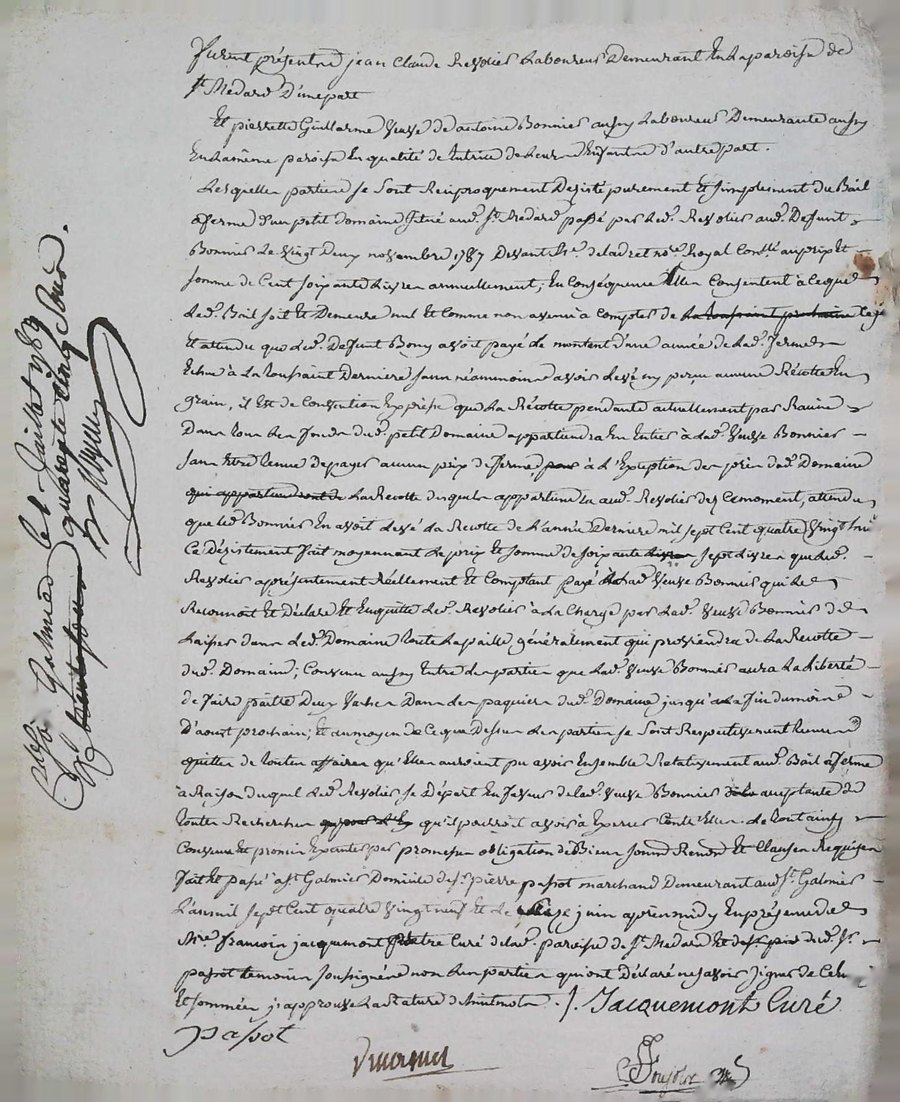 furent présentes jean Claude Revolier Laboureur Demeurant En La paroisse de
St. Medard D'une part
Et pierrette Guillarme Veuve de antoine Bonnier aussy Laboureur Demeurante aussy
En La même paroisse En qualité de Tutrice de Leurs Enfants d'autre part.
Lesquelles parties se Sont Reciproquement Desisté purement Et simplement du Bail
a ferme d'un petit domaine situé aud. St. Medard passé par Led. Revolier aud. Deffunt
Bonnier Le vingt Deux novembre 1787 Devant de Royal au prix Et
somme de Cent soixante Livres annuellement; En Conséquence Elles Consentent à Ce que
Led. Bail soit Et Demeure nul Et Comme non avenu à Compter de La Toussaint prochaine
Et attendu que Led. Deffunt Bony avoit payé Le montent d'une année de Lad. ferme
Echue à La Toussaint Derniere sans néammoins avoir Levé ny perçu aucune Récolte En
grain, il Est de Convention Expresse que La Récolte pendante actuellement par Racine
Dans Tous Les fonds dud. petit Domaine appartiendra En Entier à Lad. Veuve Bonnier
sans Etre Tenue de payer aucun prix de ferme, pour à L'Exception des prés dud. Domaine
qui appartiendront de La Recolte desquels appartiendra aud. Revolier dez Ce moment, attendu
que Led. Bonnier En avoit Levé La Recolte de L'année Derniere mil sept Cent quatre Vingt huit
Ce Désistement fait moyennant Le prix et somme de soixante Livres sept Livres que Led.
Revolier a présentement Réellement Et Comptant payé à Lad. Veuve Bonnier qui Le
Reconnoit Et Déclare Et En quitte Led. Revolier à La Charge par Lad. Veuve Bonnier de
Laisser dans Led. Domaine Toute La paille généralement qui proviendra de La Recolte
dud. Domaine; Convenu aussy Entre Les parties que Lad. Veuve Bonnier aura La Liberté
de faire paître Deux Vaches Dans Les paquiers dud. Domaine jusqu'à La fin du mois
D'aoust prochain; Et au moyen de Ce que Dessus Les parties se Sont Respectivement
quittes de Toutes affaires qu'Elles auroient pu avoir Ensemble Relativement aud. Bail à ferme
à Raison duquel Led. Revolier se Départ En faveur de Lad. Veuve Bonnier acceptante de
Toutes Recherches qu'il pourroit avoir à Exercer Contr'Elle. de Tout ainsy
Convenu Et promis par promesses obligation de Biens Et Clauses Requises
fait Et passé à St. Galmier Domicile de Sr. pierre passot marchand Demeurant aud. St. Galmier
L'an mil sept Cent quatre Vingt neuf Et Le juin après midy En présence de
Mre. francois jacquemont prêtre Curé de Lad. paroisse de St. Medard Et dud. Sr.
passot Temoins soussignés non Les parties qui ont Déclaré ne savoir signer de Ce
Et sommées j'approuve La Rature de mots. J. Jacquemont Curé
passot
Controllé à St. Galmier Le Juillet 1789
quarante Cinq Sous.